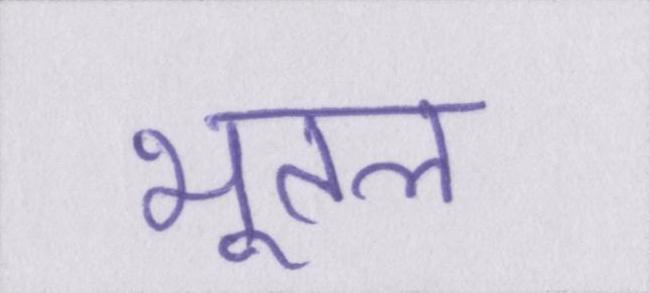 भूतल